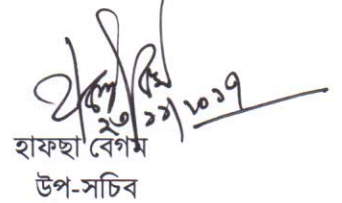 ২৩/১১/২০১৭
হাফছা বেগম
উপ-সচিব